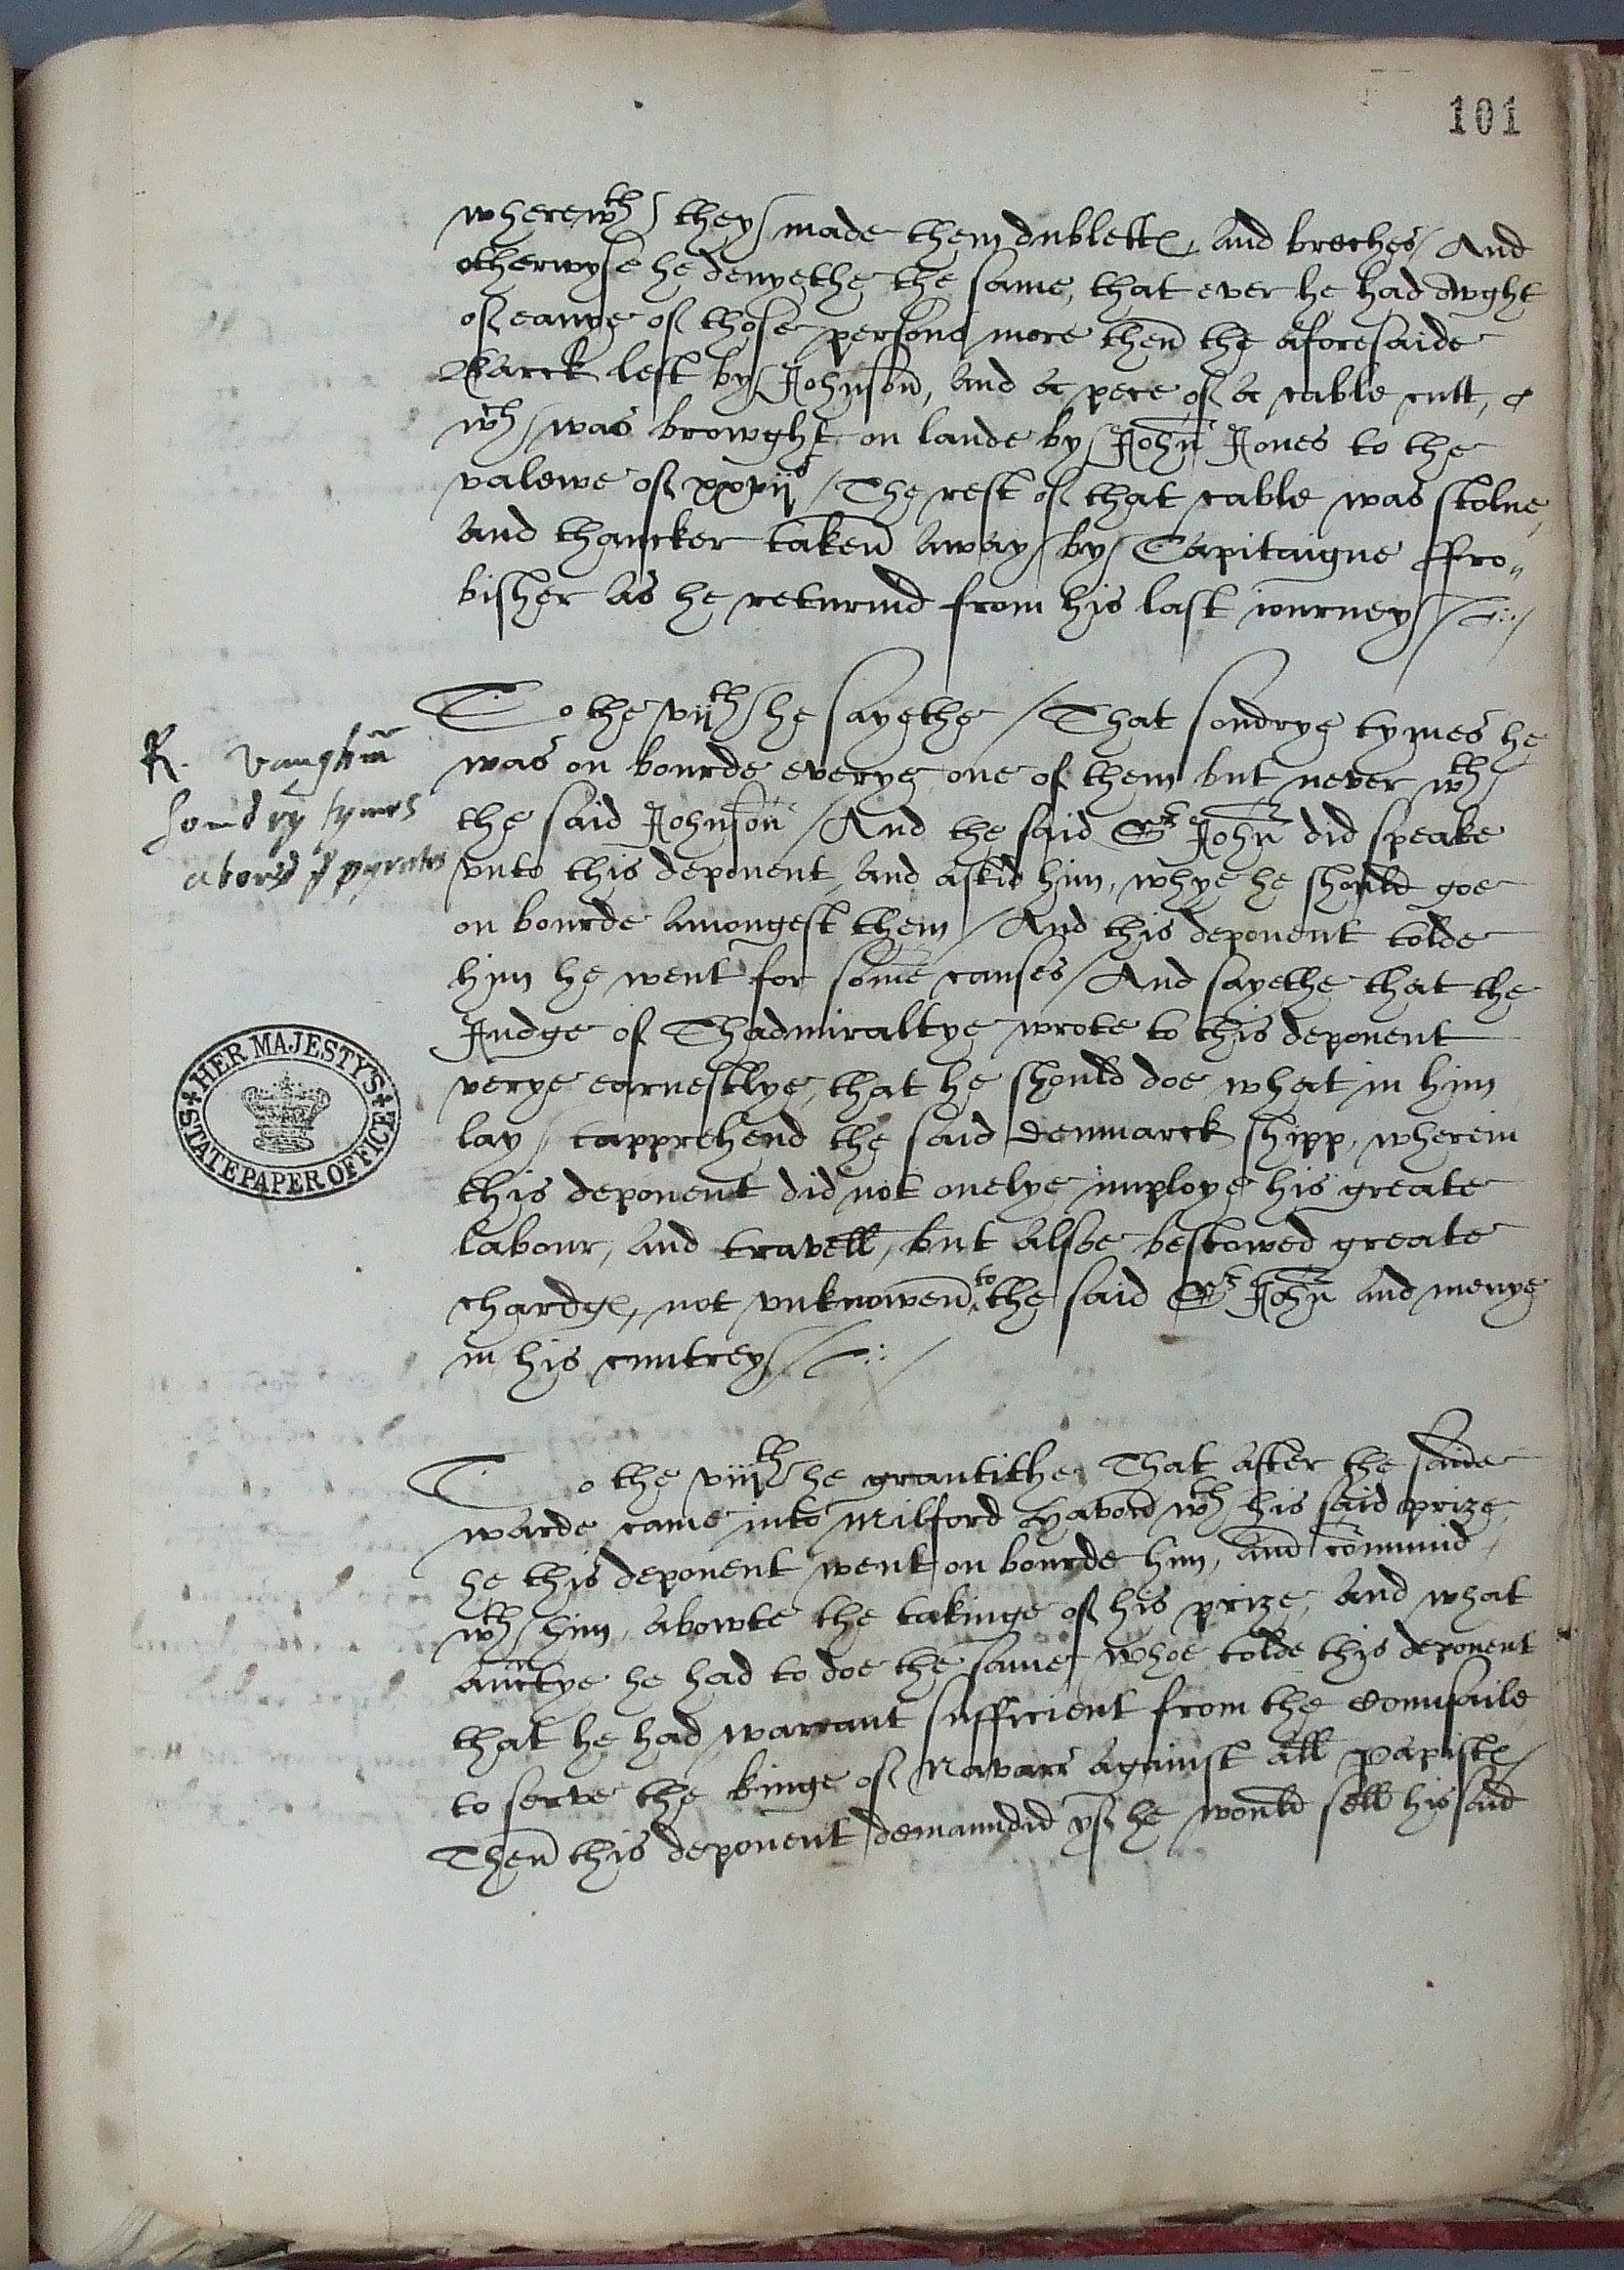 101
wherewth they made them dublettes, and breches / And
otherwyse he denyethe the same, that ever he had owght
of eanye of those persons more then the aforesaide
Barck left by Johnson, and a pece of a cable cutt,
wch was browght on lande by John Jones to the
valewe of xxvijs / The rest of that cable was stolne,
and thancker taken away by Capitaigne ffro„
bisher as he returnid from his last iourney /
To the vijth he sayethe / That sondrye tymes he
was on bourde everye one of them but never wth
the said Johnson / And the said Sr John did speake
vnto this deponent, and askid him, whye he should goe
on bourde amongest them / And this deponent tolde
him he went for some causes / And sayethe that the
Judge of Thadmiraltye wrote to this deponent
verye earnestlye, that he should doe what in him
lay, tapprehend the said denmarck shipp, wherein
this deponent did not onelye imploye his greate
labour, and travell, but alsoe bestowed greate
chardges, not vnknowen to the said Sr John and menye
in his cuntrey /
R. Vaughan
sondry tymes
abord ye pyrates
HER MAJESTY'S
STATE PAPER OFFICE
To the viijth he grantithe That after the saide
warde came into Milford Havon wth his said prize,
he this deponent went on bourde him, and commnid
wth him, abowte the takinge of his prize, and what
auctye he had to doe the same, whoe tolde this deponent
that he had warrant sufficient from the Counsaile
to serve the kinge of Navarr against all Papistes /
Then this deponent demaundid yf he would sell his said